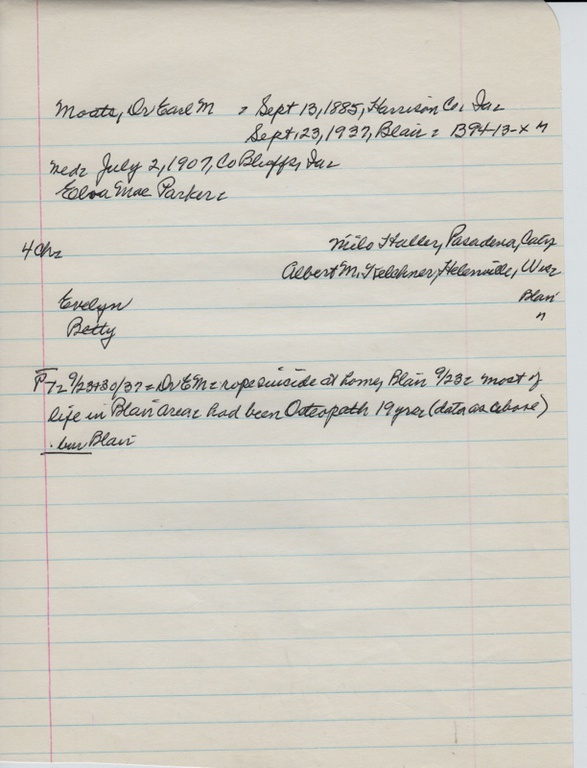 Moats, Dr Earl M = Sept 13, 1885, Harrison Co, Ia=
Sept, 23, 1937, Blair = B94-13-X M
Med= July 2, 1907, Co Bluffs, Ia=
Elva Mae Parker=
4 Ch= Milo Haller, Pasadena,
Albert M. Kelchner, Helenville, Wis=
Evelyn Blair
Betty "
PT= 9/23+30/37 = Dr EM= rope suicide at home, Blair 9/23= most of
life in Blair area= had been Osteopath 19 yrs= (data as above)
bur Blair